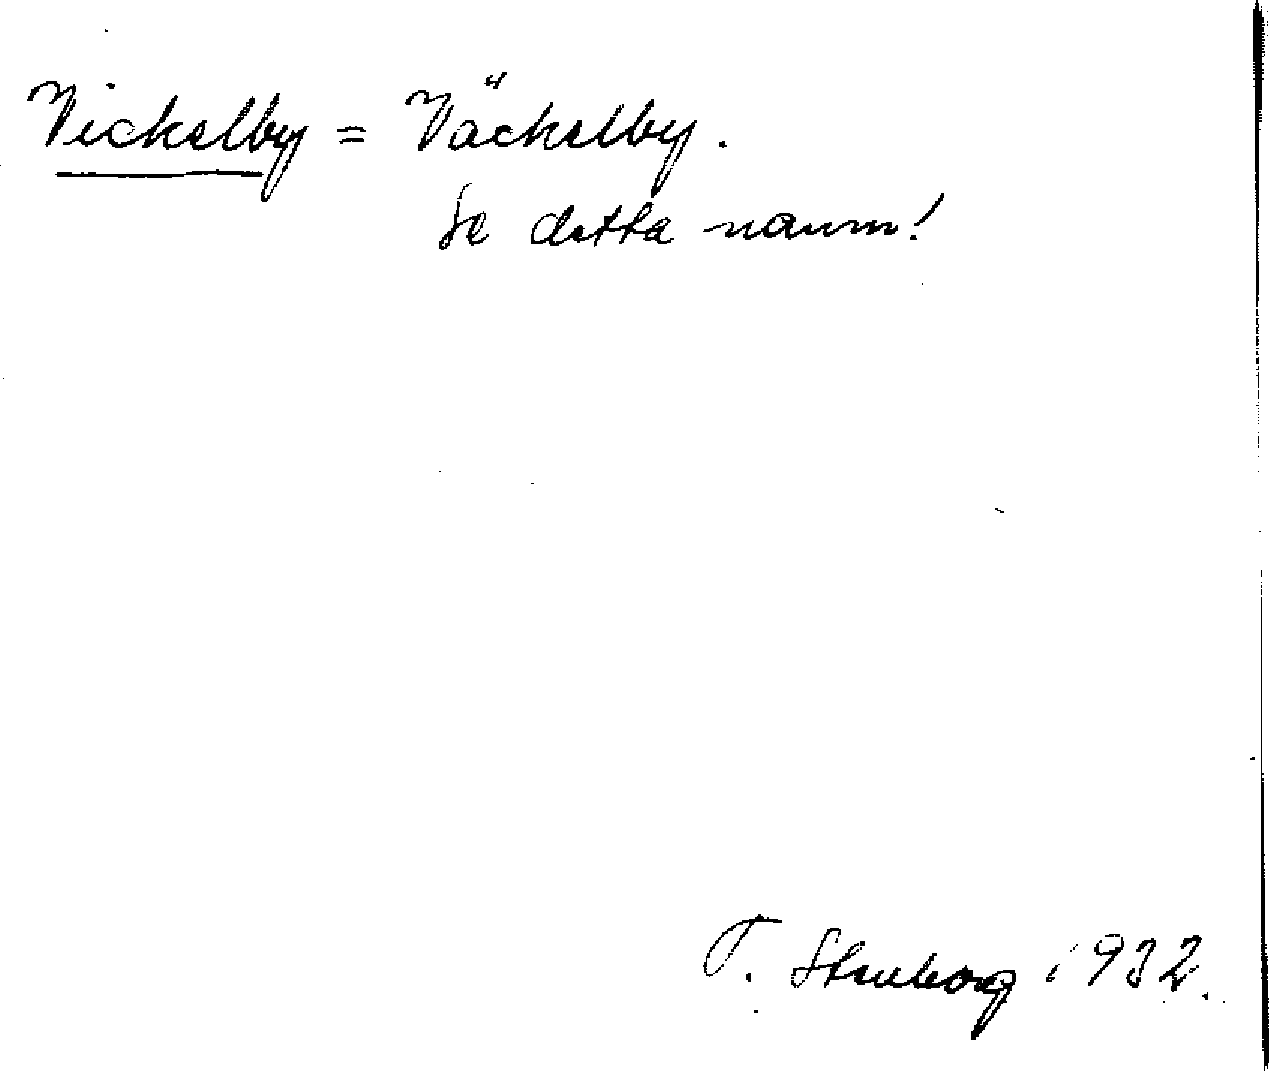 Vickelby = Väckelby.
Se detta namn!
T. Stenborg 1932.